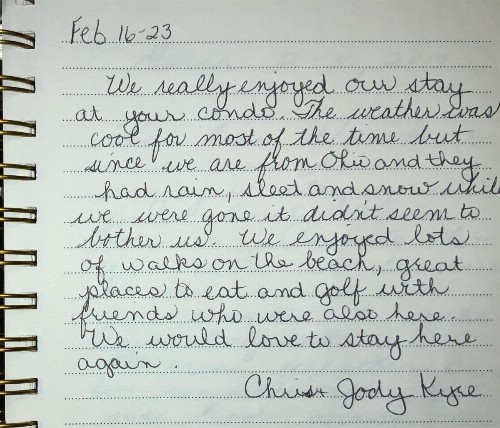 Feb 16-23
We really enjoyed our stay
at your condo. The weather was
cool for most of the time but
since we are from Ohio and they
had rain, sleet and snow while
we were gone it didn't seem to
bother us. We enjoyed lots
of walks on the beach, great
places to eat and golf with
friends who were also here.
We would love to stay here
again.
Chris + Jody